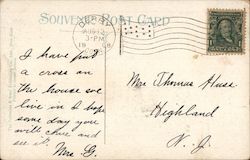 SOUVENIR POST CARD
3-PM
I have put
a cross on
the house we
live in I hope
some day you
will come and
see it.
Mrs. G.
Mrs Thomas Huse
Highland
N. J.